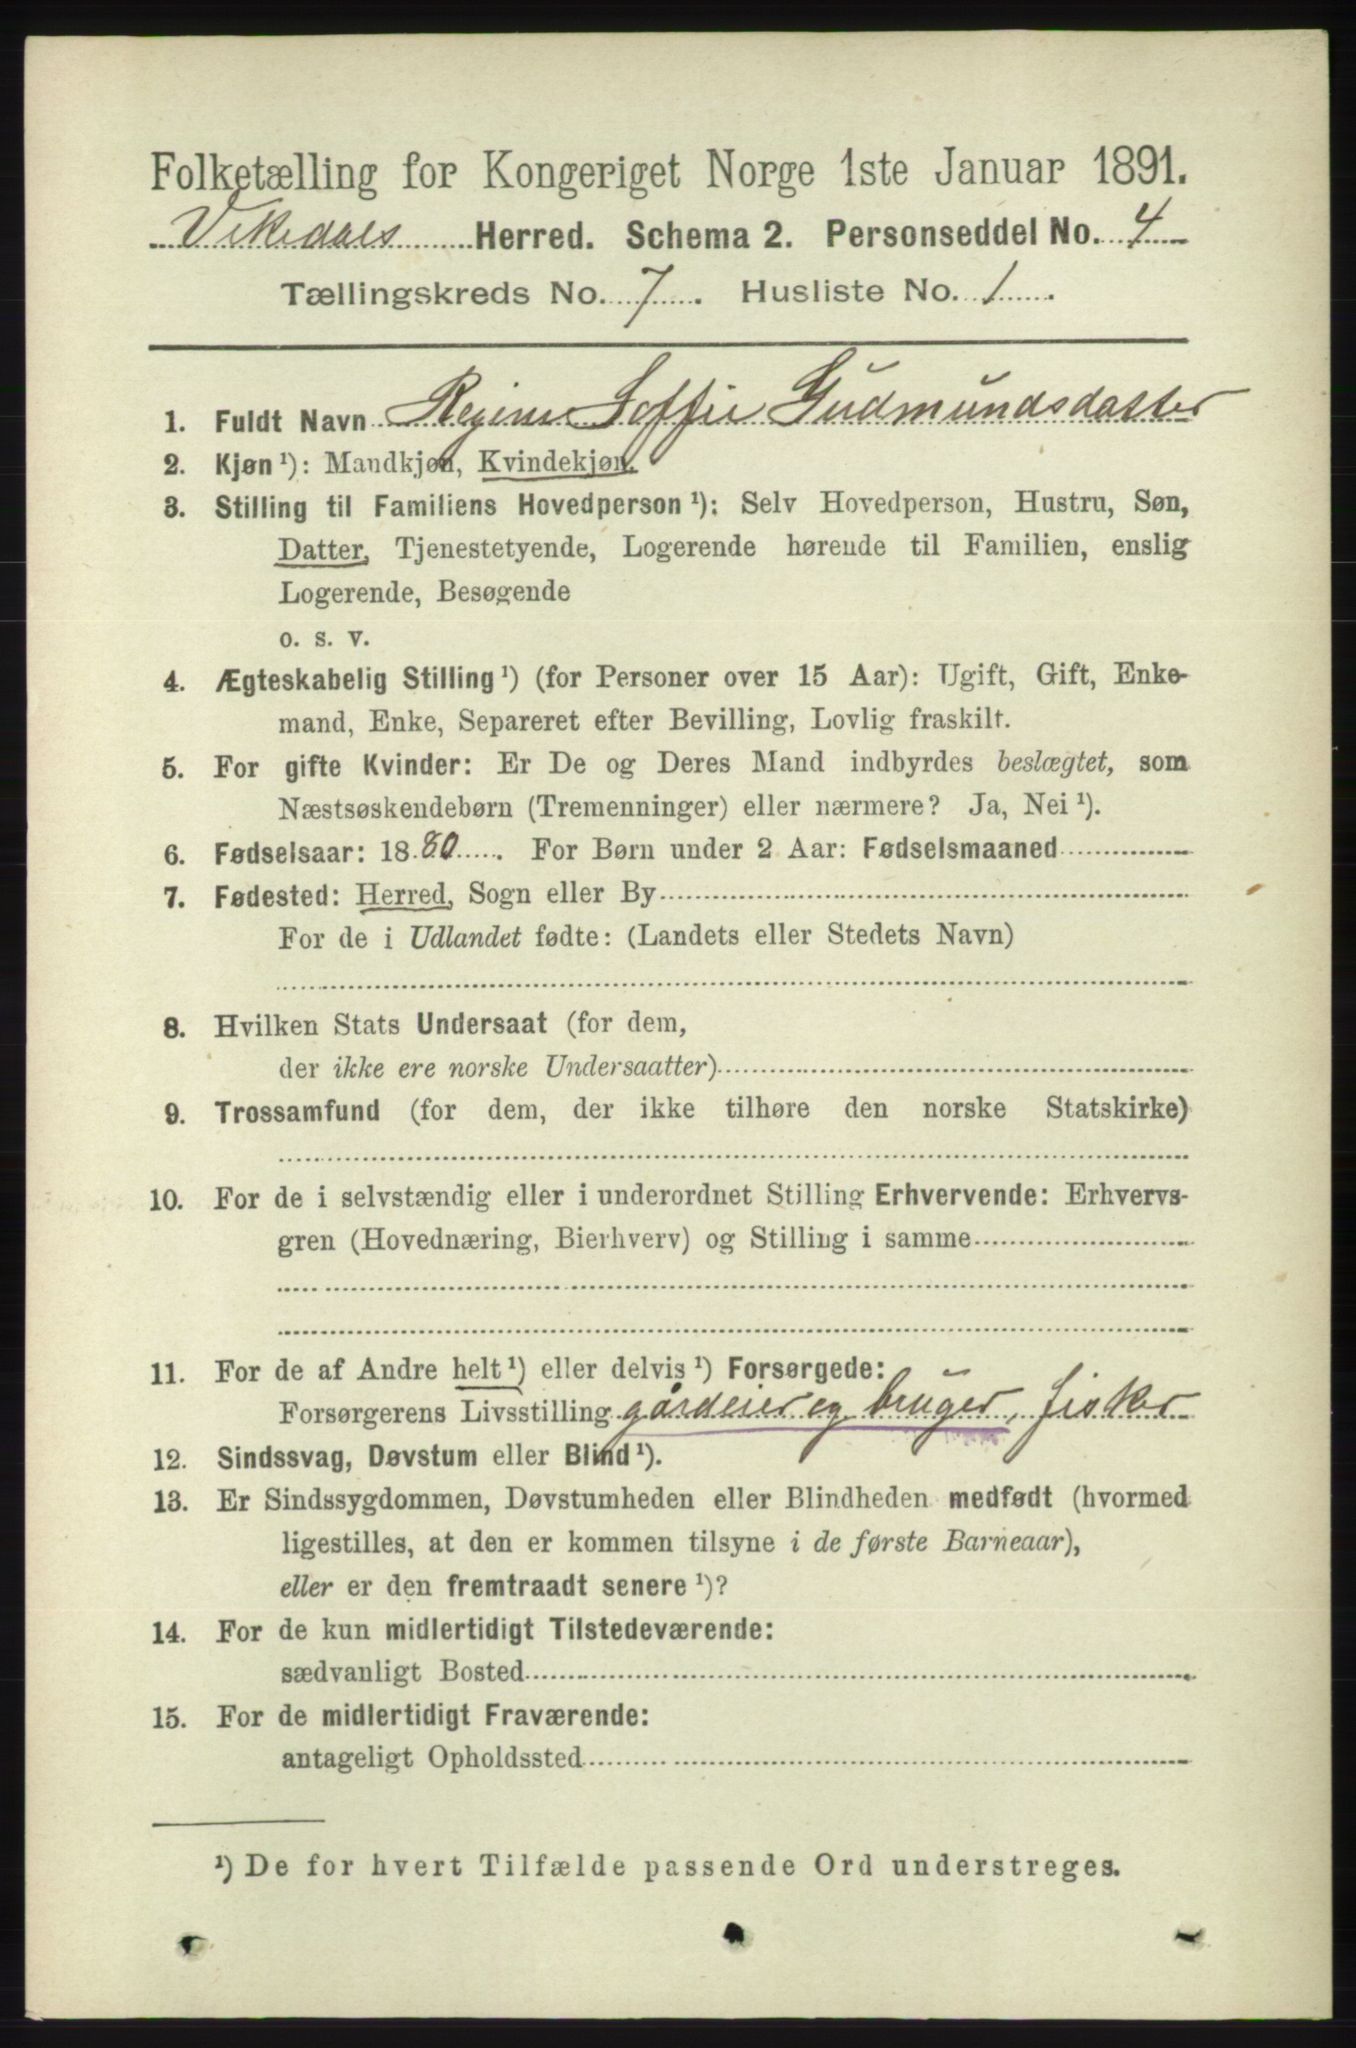 Folketælling for Kongeriget Norge 1ste Januar 1891.
Vikedals Herred. Schema 2. Personseddel No. 4
Tællingskreds No. 7. Husliste No. 1.
1. Fuldt Navn Regine Soffie Gudmundsdatter
2. Kjøn ¹): Mandkjøn, Kvindekjøn.
3. Stilling til Familiens Hovedperson ¹): Selv Hovedperson, Hustru, Søn,
Datter, Tjenestetyende, Logerende hørende til Familien, enslig
Logerende, Besøgende
o. s. v.
4. Ægteskabelig Stilling ¹) (for Personer over 15 Aar): Ugift, Gift, Enke-
mand, Enke, Separeret efter Bevilling, Lovlig fraskilt.
5. For gifte Kvinder: Er De og Deres Mand indbyrdes beslægtet, som
Næstsøskendebørn (Tremenninger) eller nærmere? Ja, Nei ¹).
6. Fødselsaar: 1880. For Børn under 2 Aar: Fødselsmaaned
7. Fødested: Herred, Sogn eller By
For de i Udlandet fødte: (Landets eller Stedets Navn)
8. Hvilken Stats Undersaat (for dem,
der ikke ere norske Undersaatter)
9. Trossamfund (for dem, der ikke tilhøre den norske Statskirke)
10. For de i selvstændig eller i underordnet Stilling Erhvervende: Erhvervs-
gren (Hovednæring, Bierhverv) og Stilling i samme
11. For de af Andre helt ¹) eller delvis ¹) Forsørgede:
Forsørgerens Livsstilling gårdeier og bruger, fisker
12. Sindssvag, Døvstum eller Blind ¹).
13. Er Sindssygdommen, Døvstumheden eller Blindheden medfødt (hvormed
ligestilles, at den er kommen tilsyne i de første Barneaar),
eller er den fremtraadt senere ¹)?
14. For de kun midlertidigt Tilstedeværende:
sædvanligt Bosted
15. For de midlertidigt Fraværende:
antageligt Opholdssted
¹) De for hvert Tilfælde passende Ord understreges.